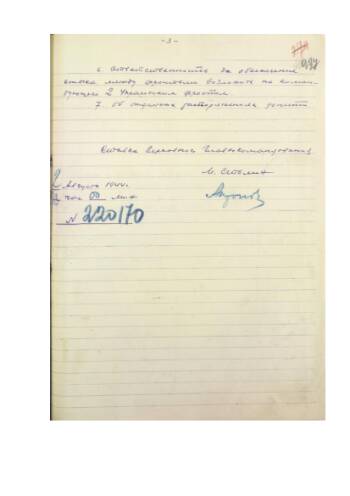 - 3 -
6. Ответственность за обеспечение
стыка между фронтами возложить на коман-
дующего 2 Украинским фронтом.
7. Об отданных распоряжениях донести
Ставка Верховного Главнокомандования
И. Сталин
2 августа 1944 г.
час 00 мин
Антонов
N 220170